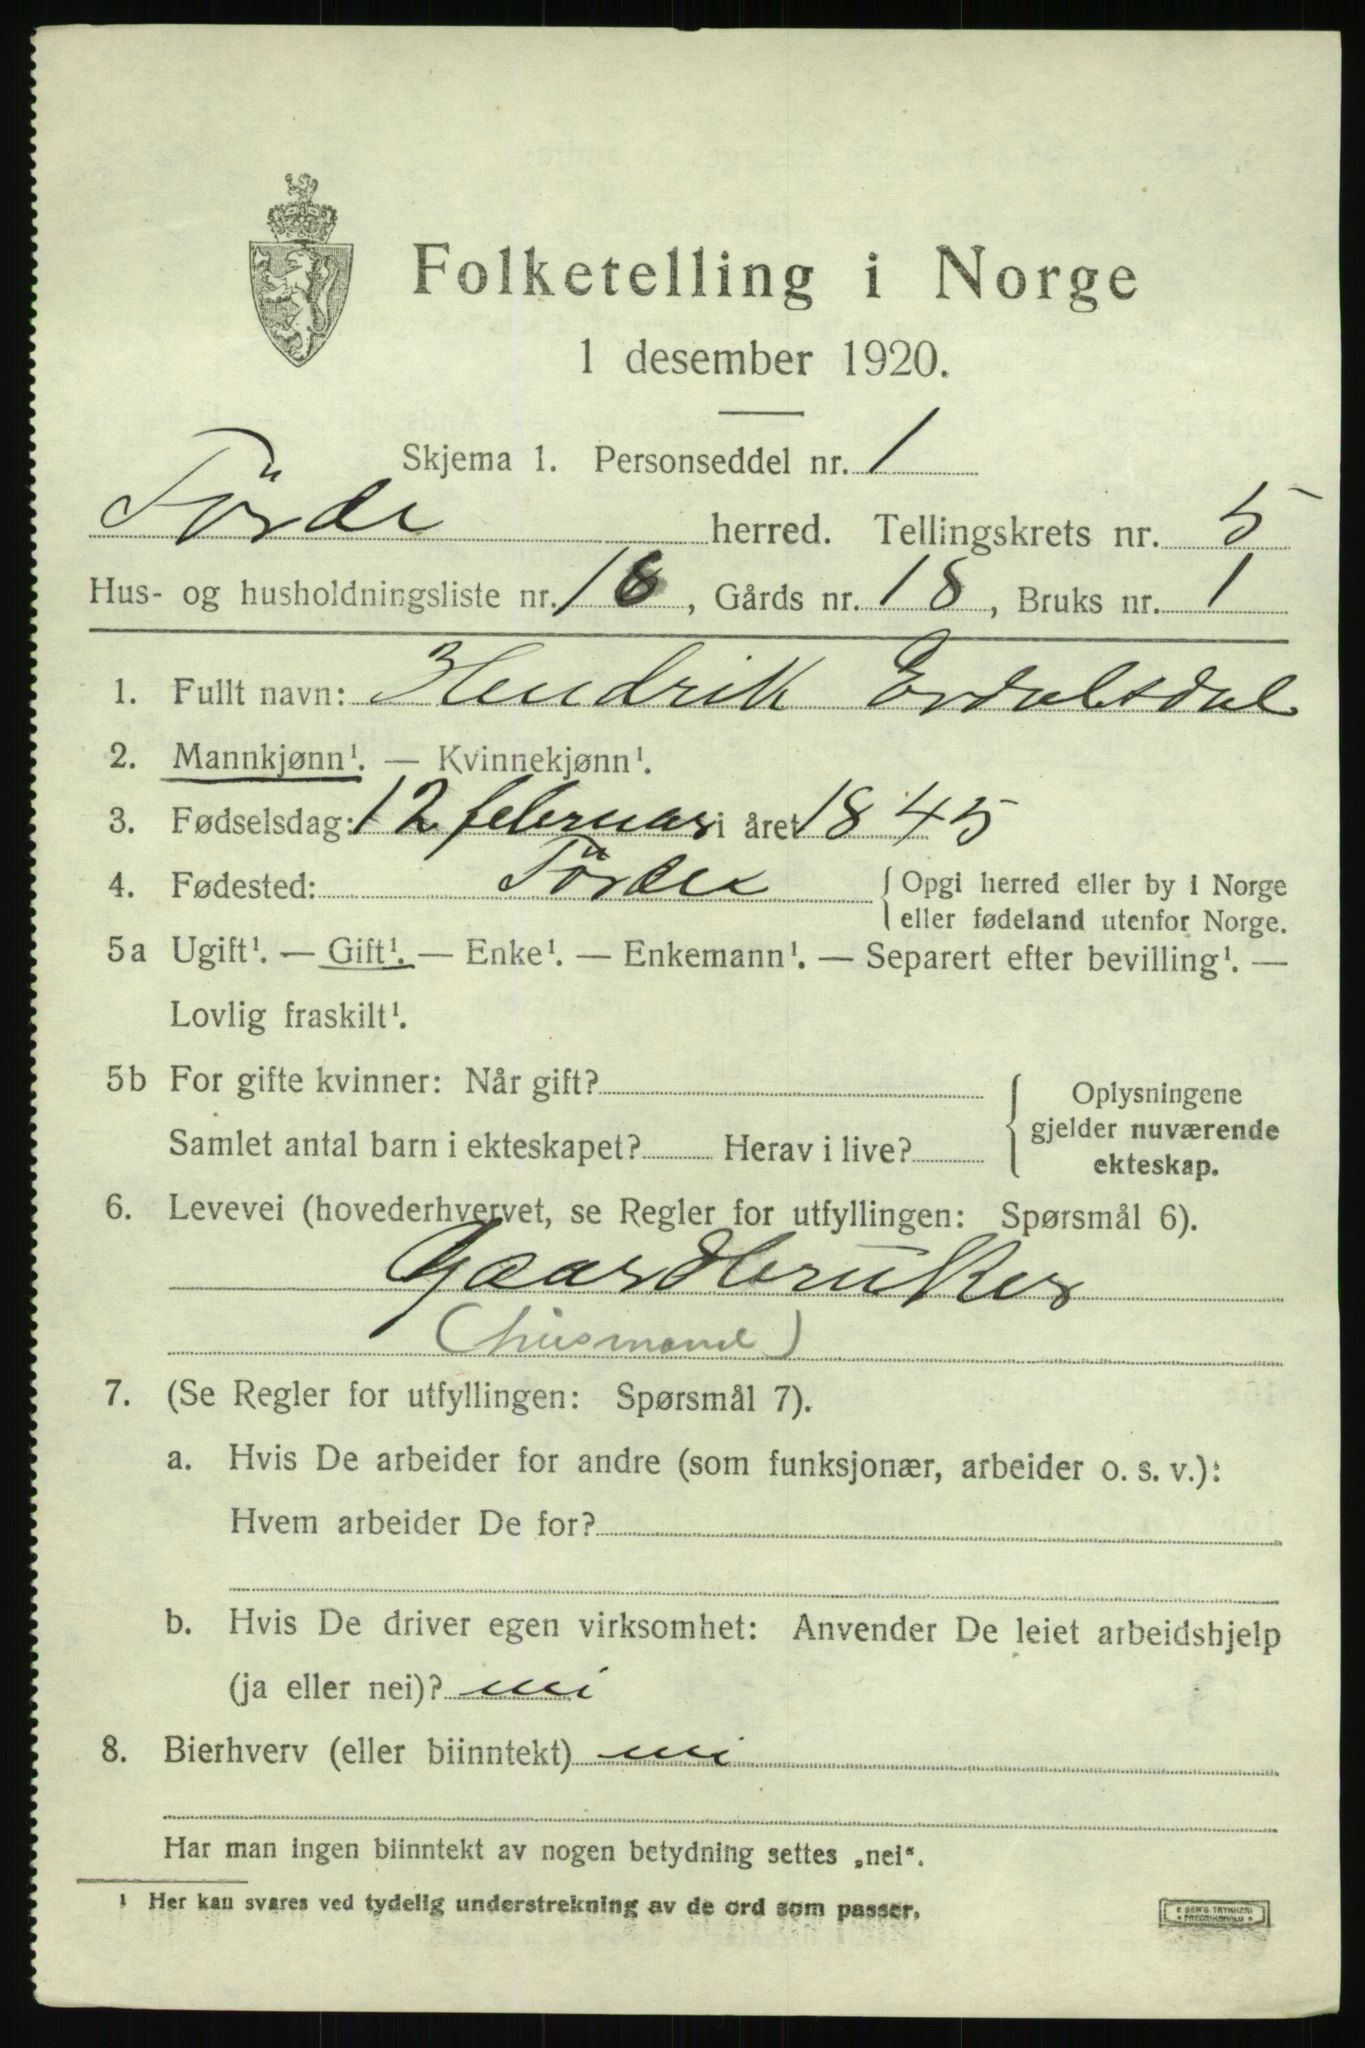 Folketelling i Norge
1 desember 1920.
Skjema 1. Personseddel nr. 1
Förde herred. Tellingskrets nr. 5
Hus- og husholdningsliste nr. 18, Gårds nr. 18, Bruks nr. 1
1. Fullt navn: Hendrik Erdalsdal
2. Mannkjønn¹. — Kvinnekjønn¹.
3. Fødselsdag: 12 februar i året 1845
4. Fødested: Förde {Opgi herred eller by i Norge
eller fødeland utenfor Norge.
5a Ugift¹. — Gift¹. — Enke¹. — Enkemann¹. — Separert efter bevilling¹. —
Lovlig fraskilt¹.
5b For gifte kvinner: Når gift? { Oplysningene
gjelder nuværende
Samlet antal barn i ekteskapet? Herav i live?
ekteskap.
6. Levevei (hovederhvervet, se Regler for utfyllingen: Spørsmål 6).
Gaardbruker
(husmand)
7. (Se Regler for utfyllingen: Spørsmål 7).
a. Hvis De arbeider for andre (som funksjonær, arbeider o. s. v.):
Hvem arbeider De for?
b. Hvis De driver egen virksomhet: Anvender De leiet arbeidshjelp
(ja eller nei)? nei
8. Bierhverv (eller biinntekt) nei
Har man ingen biinntekt av nogen betydning settes „nei“.
¹ Her kan svares ved tydelig understrekning av de ord som passer.